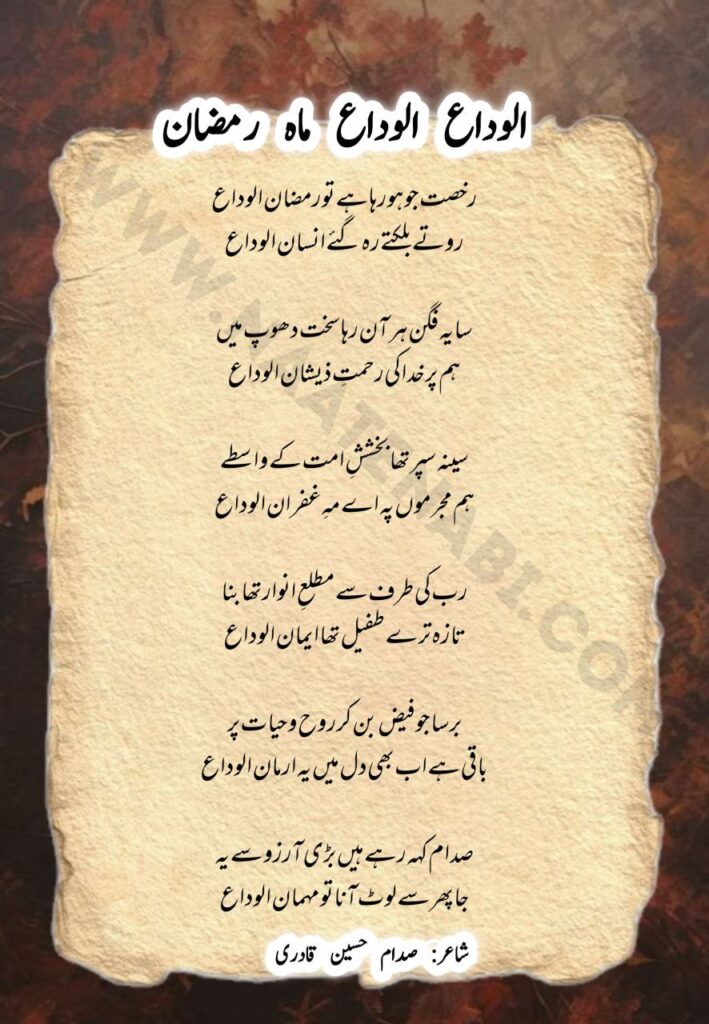 الوداع الوداع ماہ رمضان
رخصت جو ہو رہا ہے تو رمضان الوداع
روتے بلکتے رہ گئے انسان الوداع
سایہ فگن ہر آن رہا سخت دھوپ میں
ہم پر خدا کی رحمتِ ذیشان الوداع
سینہ سپر تھا بخششِ امت کے واسطے
ہم مجرموں پہ اے مہِ غفران الوداع
رب کی طرف سے مطلعِ انوار تھا بنا
تازہ ترے طفیل تھا ایمان الوداع
برسا جو فیض بن کر روح و حیات پر
باقی ہے اب بھی دل میں یہ ارمان الوداع
صدام کہہ رہے ہیں بڑی آرزو سے یہ
جا پھر سے لوٹ آنا تو مہمان الوداع
شاعر: صدام حسین قادری
WWW.NAATENABI.COM